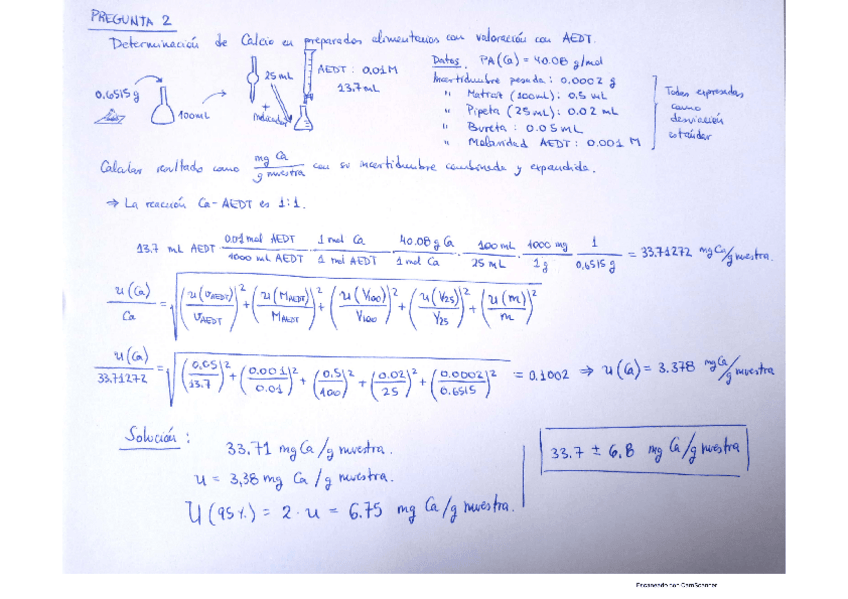 PREGUNTA 2
Determinación de Calcio en preparados alimentarios con valoración con AEDT.
0.6515 g
100mL
25 mL
+
Indicador
AEDT: 0,01M
13.7mL
Datos. PA(Ca) = 40.08 g/mol
Incertidumbre pesada: 0.0002 g
" Matraz (100mL): 0,5 mL
" Pipeta (25mL): 0.02 mL
" Bureta: 0.05 mL
" Molaridad AEDT: 0.001 M
Todas expresadas
como
desviación
estándar
Calcular resultado como mg Ca / g muestra con su incertidumbre combinada y expandida.
⇒ La reacción Ca-AEDT es 1:1.
13.7 mL AEDT · 0.01 mol AEDT / 1000 mL AEDT · 1 mol Ca / 1 mol AEDT · 40.08 g Ca / 1 mol Ca · 100mL / 25 mL · 1000 mg / 1 g · 1 / 0,6515 g = 33.71272 mg Ca/g muestra.
u(Ca) / Ca = √ (u(VAEDT) / VAEDT)² + (u(MAEDT) / MAEDT)² + (u(V100) / V100)² + (u(V25) / V25)² + (u(m) / m)²
u(Ca) / 33.71272 = √ (0.05 / 13.7)² + (0.001 / 0.01)² + (0.5 / 100)² + (0.02 / 25)² + (0.0002 / 0.6515)² = 0.1002 ⇒ u(Ca) = 3.378 mg Ca/g muestra
Solución:
33.71 mg Ca/g muestra.
u = 3,38 mg Ca/g muestra.
U(95%) = 2·u = 6.75 mg Ca/g muestra.
33.7 ± 6,8 mg Ca/g muestra
Escaneado con CamScanner